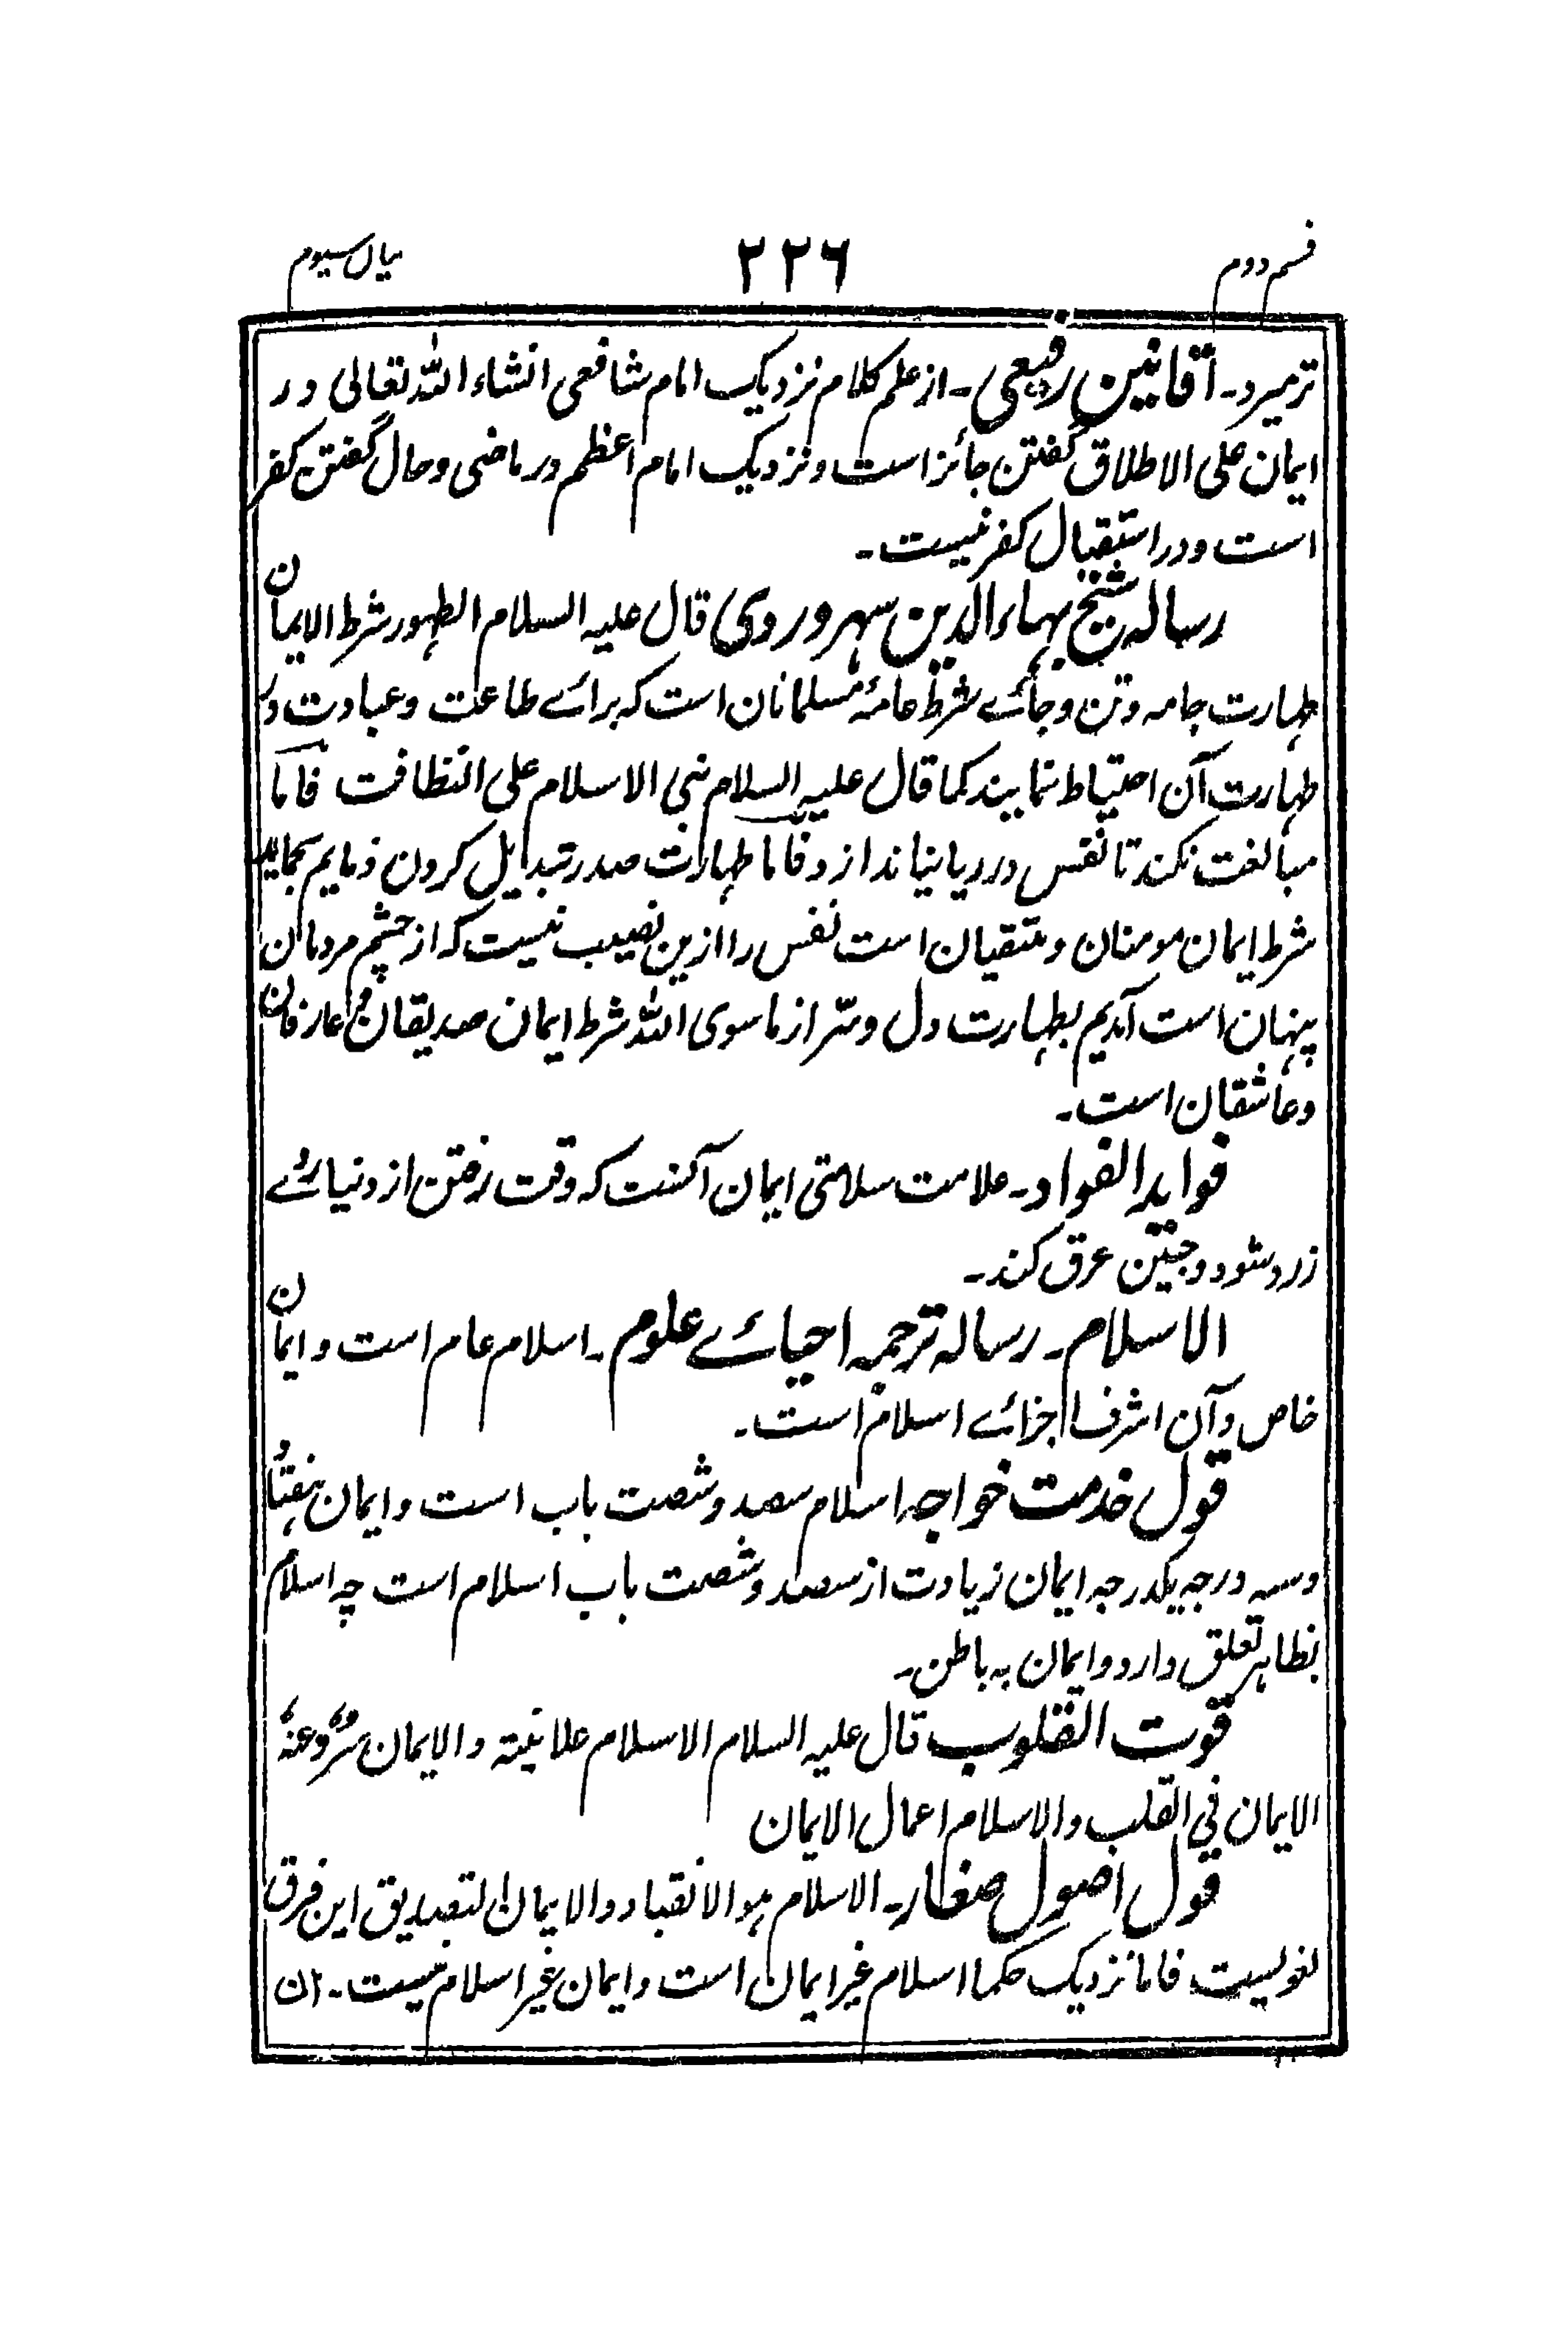 قسم دوم
۲۲۶
بیان سیوم
ترمیرد۔ آفانین رفیعی۔ از علم کلام نزدیک امام شافعی انشاء اللہ تعالی در
ایمان علی الاطلاق گفتن جائز است و نزدیک امام اعظم در ماضی و حال گفتن کفر
است و در استقبال کفر نیست۔
رسالہ شیخ بہاء الدین سہروردی قال علیہ السلام الطہور شرط الایمان
طہارت جامہ و تن و جائے شرط عامۂ مسلمانان است کہ برائے طاعت و عبادت در
طہارت آن احتیاط نمایند کما قال علیہ السلام بنی الاسلام علی النظافت فاما
مبالغت نکند تا نفس در ریا نیاندازد فاما طہارت صدر تبدیل کردن ذمایم بحماید
شرط ایمان مومنان و متقیان است نفس را ازین نصیب نیست کہ از چشم مردمان
پنہان است آمدیم بطہارت دل و سّر از ما سوی اللہ شرط ایمان صدیقان و عارفان
و عاشقان است۔
فواید الفواد۔ علامت سلامتی ایمان آنست کہ وقت رفتن از دنیا روئے
زرد شود و جبین عرق کند۔
الاسلام۔ رسالہ ترجمہ احیائے علوم۔ اسلام عام است و ایمان
خاص و آن اشرف اجزائے اسلام است۔
قول خدمت خواجہ اسلام سصد و شصت باب است و ایمان ہفتاد
و سہ درجہ یکدرجہ ایمان زیادت از سصد و شصت باب اسلام است چہ اسلام
بظاہر تعلق دارد و ایمان بہ باطن۔
قوت القلوب قال علیہ السلام الاسلام علانیتہ والایمان سرٌّ وعنہُ
الایمان فی القلب والاسلام اعمال الایمان
قول اصول صغار۔ الاسلام ہو الانقیاد والایمان التصدیق این فرق
لغویست فاما نزدیک حکما اسلام غیر ایمان است و ایمان غیر اسلام نیست۔ ان